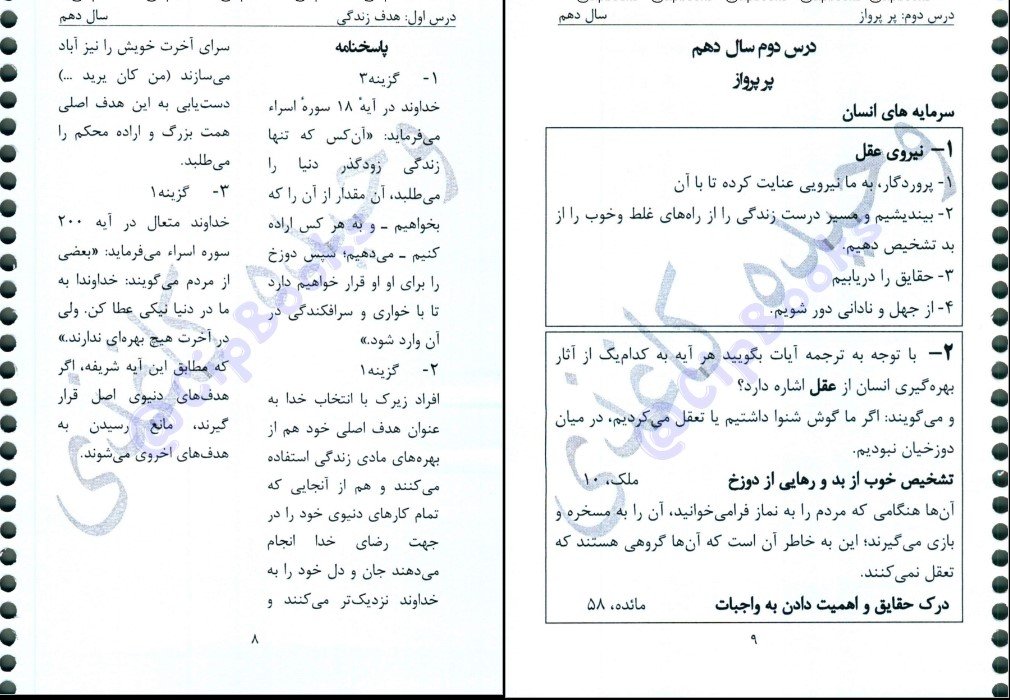 درس دوم: پر پرواز سال دهم
درس دوم سال دهم
پر پرواز
سرمایه های انسان
۱– نیروی عقل
۱- پروردگار، به ما نیرویی عنایت کرده تا با آن
۲- بیندیشیم و مسیر درست زندگی را از راه‌های غلط وخوب را از
بد تشخیص دهیم.
۳- حقایق را دریابیم
۴- از جهل و نادانی دور شویم.
۲– با توجه به ترجمه آیات بگویید هر آیه به کدام‌یک از آثار
بهره‌گیری انسان از عقل اشاره دارد؟
و می‌گویند: اگر ما گوش شنوا داشتیم یا تعقل می‌کردیم، در میان
دوزخیان نبودیم.
تشخیص خوب از بد و رهایی از دوزخ ملک، ۱۰
آن‌ها هنگامی که مردم را به نماز فرامی‌خوانید، آن را به مسخره و
بازی می‌گیرند؛ این به خاطر آن است که آن‌ها گروهی هستند که
تعقل نمی‌کنند.
درک حقایق و اهمیت دادن به واجبات مائده، ۵۸
۹
درس اول: هدف زندگی سال دهم
پاسخنامه
۱- گزینه۳
خداوند در آیهٔ ۱۸ سورهٔ اسراء
می‌فرماید: «آن‌کس که تنها
زندگی زودگذر دنیا را
می‌طلبد، آن مقدار از آن را که
بخواهیم ـ و به هر کس اراده
کنیم ـ می‌دهیم؛ سپس دوزخ
را برای او او قرار خواهیم دارد
تا با خواری و سرافکندگی در
آن وارد شود.»
۲- گزینه۱
افراد زیرک با انتخاب خدا به
عنوان هدف اصلی خود هم از
بهره‌های مادی زندگی استفاده
می‌کنند و هم از آنجایی که
تمام کارهای دنیوی خود را در
جهت رضای خدا انجام
می‌دهند جان و دل خود را به
خداوند نزدیک‌تر می‌کنند و
سرای آخرت خویش را نیز آباد
می‌سازند (من کان یرید ...)
دست‌یابی به این هدف اصلی
همت بزرگ و اراده محکم را
می‌طلبد.
۳- گزینه۱
خداوند متعال در آیه ۲۰۰
سوره اسراء می‌فرماید: «بعضی
از مردم می‌گویند: خداوندا به
ما در دنیا نیکی عطا کن. ولی
در آخرت هیچ بهره‌ای ندارند.»
که مطابق این آیه شریفه، اگر
هدف‌های دنیوی اصل قرار
گیرند، مانع رسیدن به
هدف‌های اخروی می‌شوند.
۸
وحید کاغذی
@ClipBooks